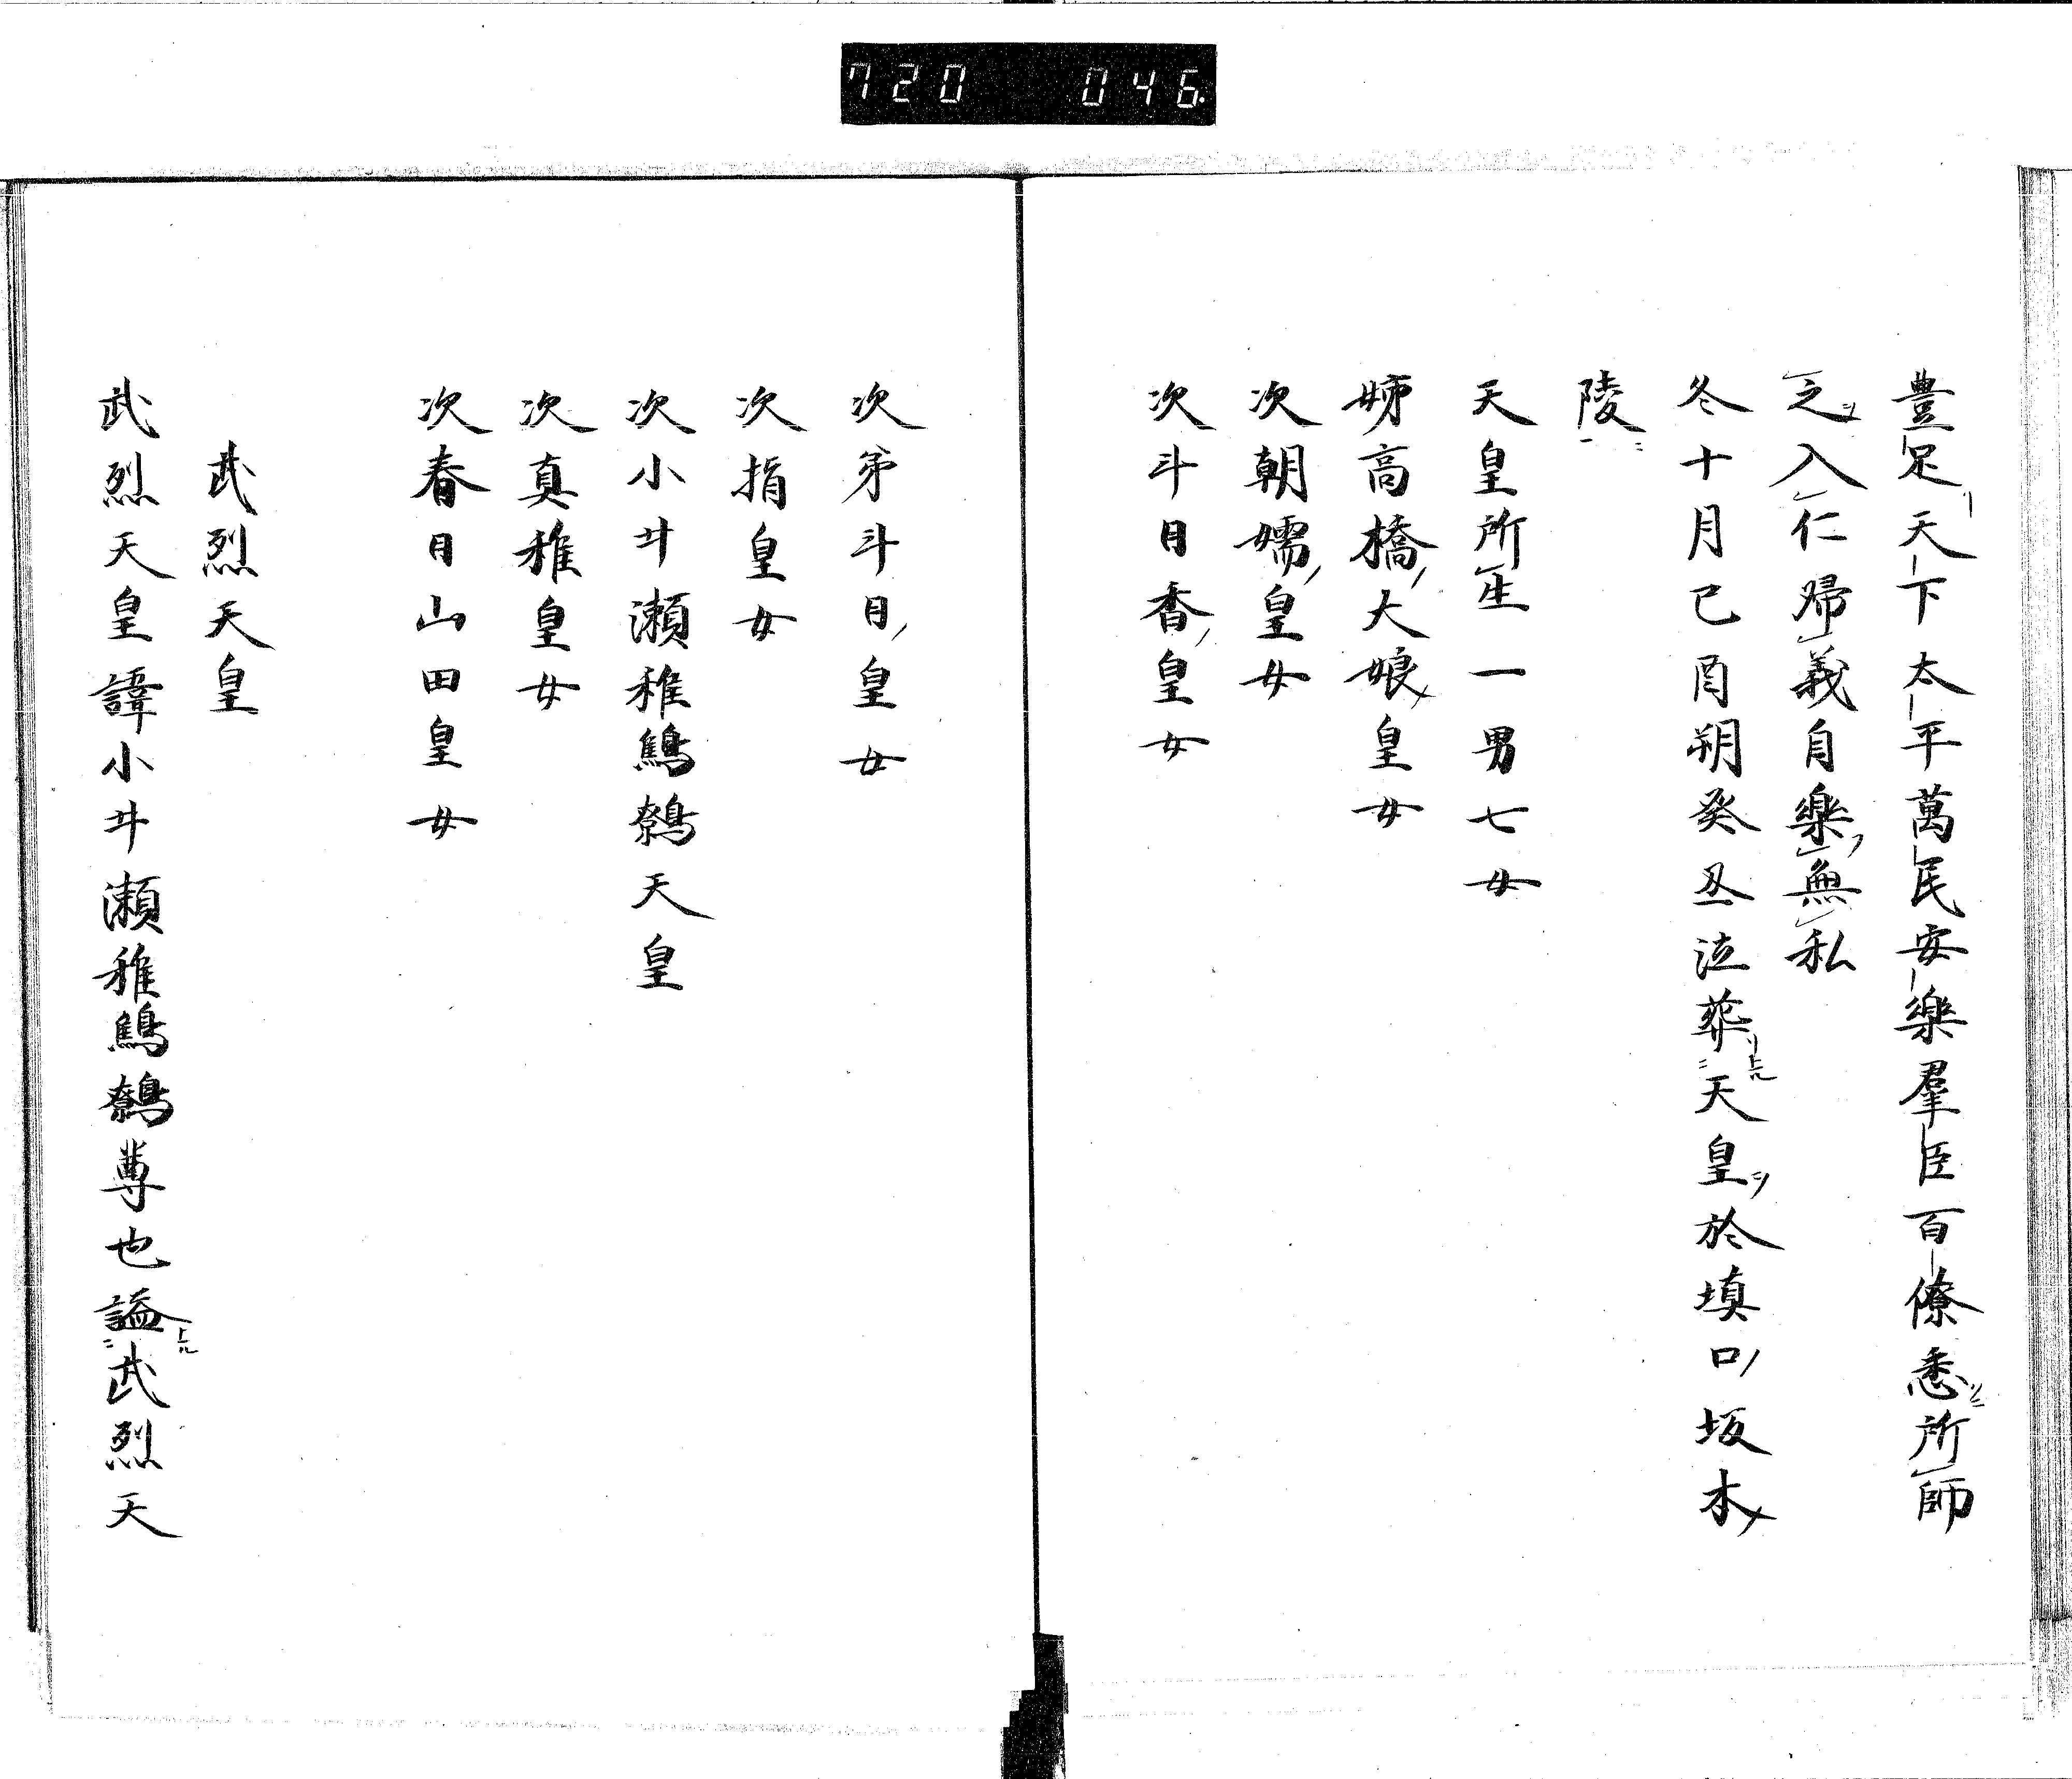 720 046
豊足天下太平萬民安樂羣臣百僚悉所師
之入仁帰義自樂無私
冬十月己酉朔癸丑泣葬天皇於填口坂木
陵
天皇所生一男七女
姉高橋大娘皇女
次朝嬬皇女
次斗日香皇女
次弟斗日皇女
次指皇女
次小井瀬稚鷦鷯天皇
次真稚皇女
次春日山田皇女
武烈天皇
武烈天皇諱小井瀬稚鷦鷯尊也謚武烈天